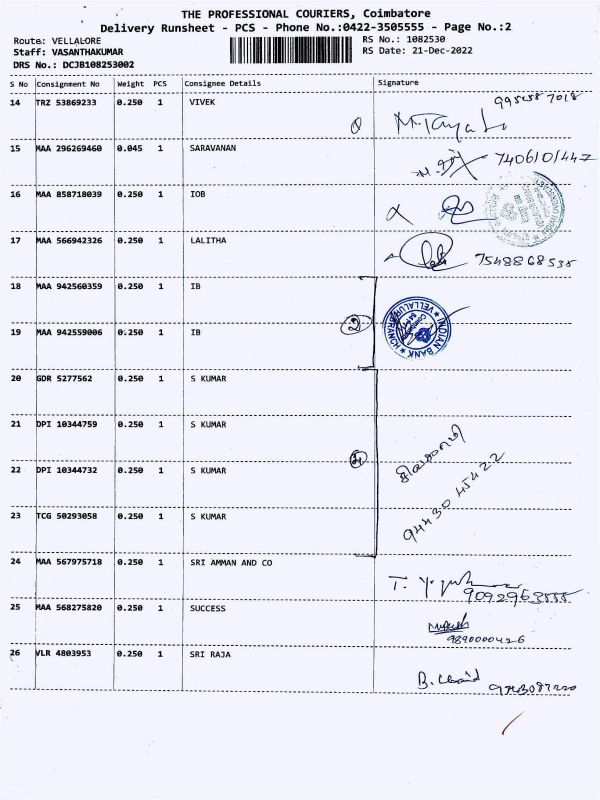 THE PROFESSIONAL COURIERS, Coimbatore
Delivery Runsheet - PCS - Phone No.:0422-3505555 - Page No.:2
Route: VELLALORE
RS No.: 1082530
Staff: VASANTHAKUMAR
RS Date: 21-Dec-2022
DRS No.: DCJB108253002
S No Consignment No Weight PCS Consignee Details Signature
14 TRZ 53869233 0.250 1 VIVEK
15 MAA 296269460 0.045 1 SARAVANAN
7406101447
16 MAA 858718039 0.250 1 IOB
17 MAA 566942326 0.250 1 LALITHA
7548868535
18 MAA 942560359 0.250 1 IB
INDIAN BANK
VELLALUR BRANCH
2
19 MAA 942559006 0.250 1 IB
20 GDR 5277562 0.250 1 S KUMAR
21 DPI 10344759 0.250 1 S KUMAR
22 DPI 10344732 0.250 1 S KUMAR
4
94430 45422
23 TCG 50293058 0.250 1 S KUMAR
24 MAA 567975718 0.250 1 SRI AMMAN AND CO
9092963555
25 MAA 568275820 0.250 1 SUCCESS
9890000426
26 VLR 4803953 0.250 1 SRI RAJA